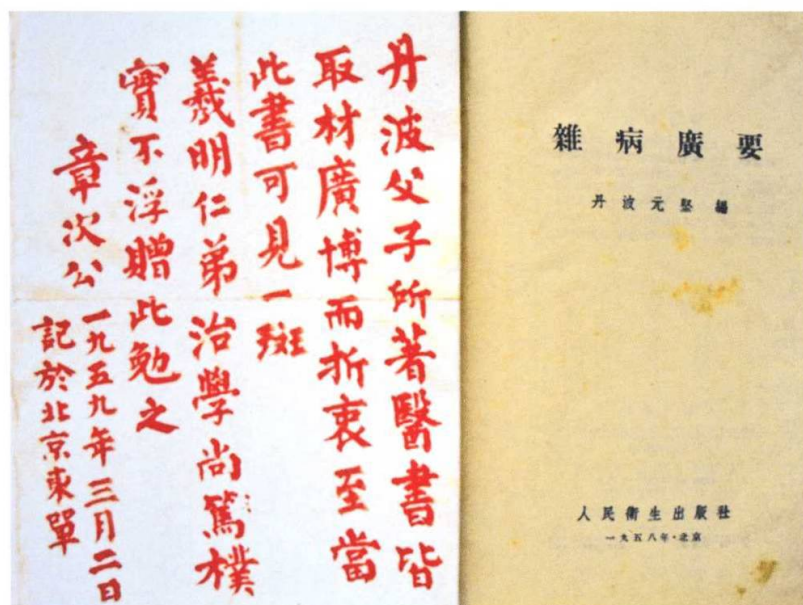 丹波父子所著醫書皆
取材廣博而折衷至當
此書可見一斑
義明仁弟治學尚篤樸
實不浮贈此勉之
章次公一九五九年三月二日
記於北京東單
雜病廣要
丹波元堅編
人民衛生出版社
一九五八年·北京